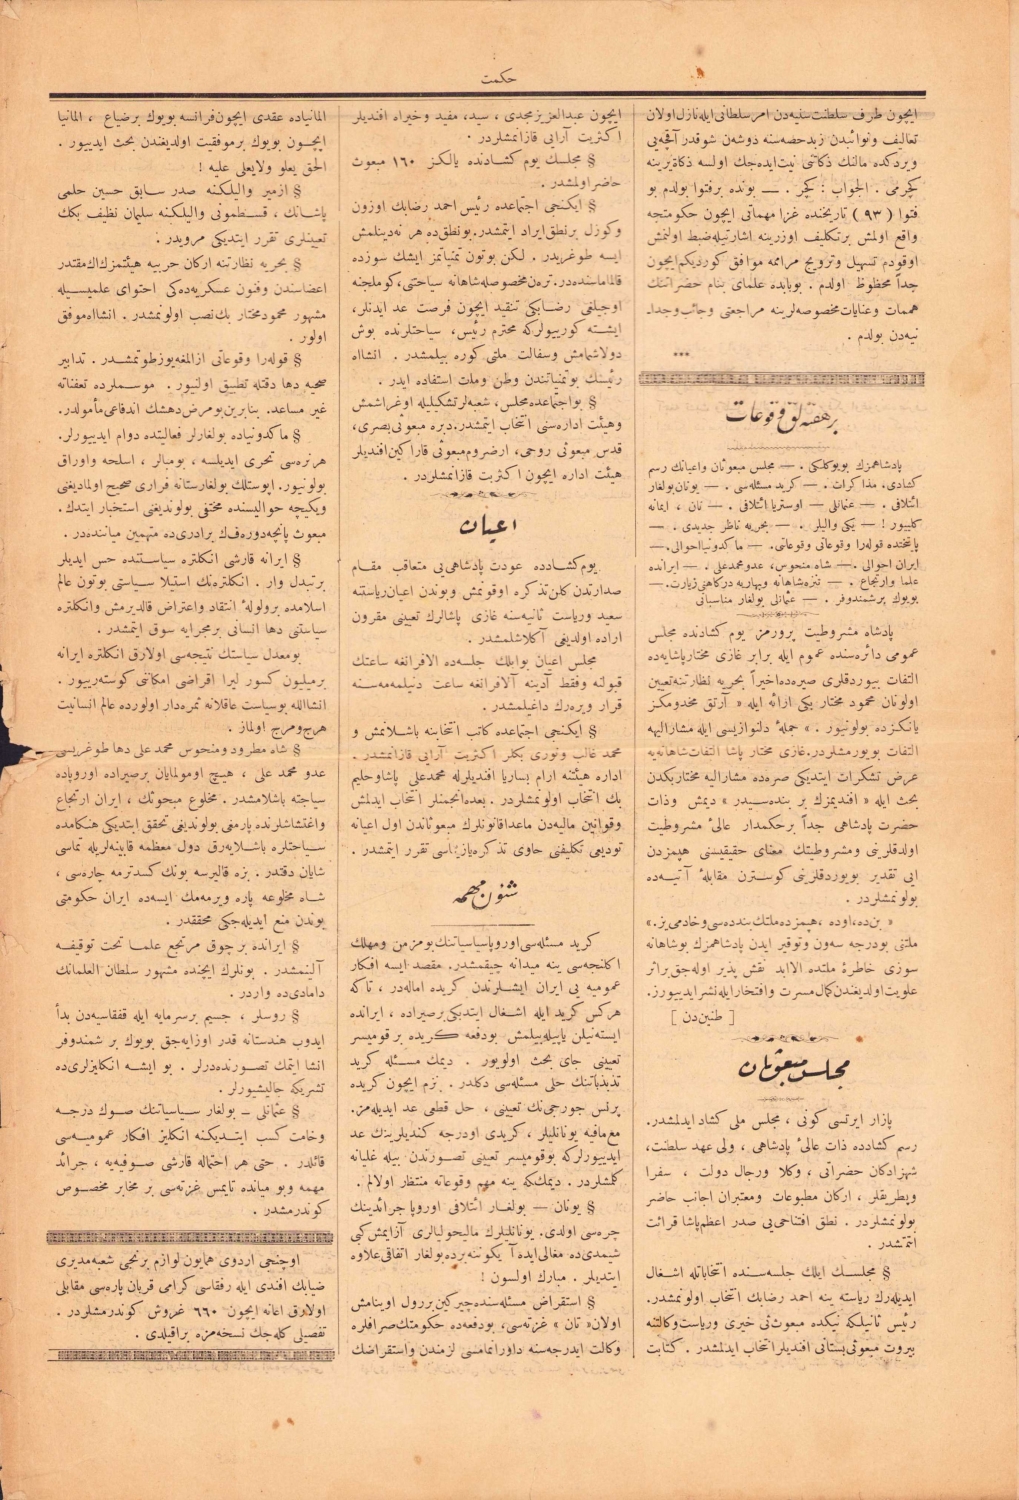 حكمت
ايچون طرف سلطنت سنيه‌دن امر سلطانی ايله نازل اولان
تعاليف و نوائبدن زيد حصه‌سنه دوشه‌ن شو قدر آقچه‌يی
ويردكده مالنك ذكاتی نيت ايده‌جك اولسه ذكاة يرينه
كچرمی . الجواب : كچر . — بونده بر فتوا بولدم بو
فتوا ( ٩٣ ) تاريخنده غزا مهماتی ايچون حكومتجه
واقع اولمش بر تكليف اوزرينه اشارتيله ضبط اولنمش
اوقودم تسهيل و ترويج مراممه موافق كورديكم ايچون
جداً محظوظ اولدم . بوبابده علمای بنام حضراتنك
همات و عنايات مخصوصه‌لرينه مراجعتی وجائب وجدا-
نيه‌دن بولدم .
***
بر هفته‌لق وقوعات
پادشاهمزك بويوكلكی . — مجلس مبعوثان و اعيانك رسم
كشادی، مذاكرات . — كريد مسئله‌سی . — يونان بولغار
ائتلافی . — عثمانلی . — اوستريا ائتلافی . — تان ، ايمانه
كليور ! — يكی واليلر . — بحريه ناظر جديدی . —
پايتختده قوله‌را وقوعاتی وقوعاتی . — ماكدونيا احوالی.—
ايران احوالی .— شاه منحوس، عدو محمدعلی . — ايرانده
علما وارتجاع . — تنزه شاهانه وبهاريه دركاهنی زيارت.—
بويوك برشمندوفر . — عثمانلی بولغار مناسباتی
پادشاه مشروطيت پرورمز يوم كشادنده مجلس
عمومی دائره‌سنده عموم ايله برابر غازی مختار پاشايه‌ده
التفات بيوردقلری صيره‌ده اخيراً بحريه نظارتنه تعيين
اولونان محمود مختار بكی ارائه ايله « آرتق مخدومكز
يانكزده بولونيور . » جملهٔ دلنوازيسی ايله مشاراليهه
التفات بويورمشلردر. غازی مختار پاشا التفات شاهانه‌يه
عرض تشكرات ايتديكی صره‌ده مشاراليه مختار بكدن
بحث ايله « افنديمزك بر بنده‌سيدر » ديمش وذات
حضرت پادشاهی جداً بر حكمدار عالئ مشروطيت
اولدقلرينی ومشروطيتك معنای حقيقيسنی هپمزدن
ايی تقدير بويوردقلرينی كوسترن مقابلهٔ آتيه‌ده
بولونمشلردر .
« بن‌ده، اوده ، هپمزده ملتك بنده‌سی وخادمی‌يز. »
ملتنی بودرجه سه‌ون وتوقير ايدن پادشاهمزك بو شاهانه
سوزی خاطرهٔ ملتده الاابد نقش پذير اوله‌جق بر اثر
علويت اولديغندن كمال مسرت وافتخار ايله نشر ايدييورز.
[ طنين‌دن ]
مجلس مبعوثان
پازار ايرتسی كونی ، مجلس ملی كشاد ايدلمشدر.
رسم كشادده ذات عالئ پادشاهی ، ولی عهد سلطنت،
شهزادكان حضراتی ، وكلا ورجال دولت ، سفرا
وبطريقلر ، اركان مطبوعات ومعتبران اجانب حاضر
بولونمشلردر . نطق افتتاحی‌يی صدر اعظم پاشا قرائت
ايتمشدر .
§ مجلسك ايلك جلسه‌سنده انتخاباتله اشغال
ايديله‌رك رياسته ينه احمد رضا بك انتخاب اولونمشدر.
رئيس ثانيلكه نيكده مبعوثی خيری ورياست وكالتنه
بيروت مبعوثی بستانی افنديلر انتخاب ايدلمشدر . كتابت
ايچون عبدالعزيز مجدی ، سيد، مفيد وخيراه افنديلر
اكثريت آرایی قازانمشلردر .
§ مجلسك يوم كشادنده يالكز ١٦٠ مبعوث
حاضر اولمشدر .
§ ايكنجی اجتماعده رئيس احمد رضا بك اوزون
وكوزل بر نطق ايراد ايتمشدر. بو نطق‌ده هر نه دينلمش
ايسه طوغريدر . لكن بوتون تمنياتمز ايشك سوزده
قالماماسنده‌در. تره‌ن مخصوصله شاهانه سياحتی، كوملجنه
اوجيلغی رضا بكی تنقيد ايچون فرصت عد ايدنلر،
ايشته كوريیورلركه محترم رئيس، سياحتلرنده بوش
دولاشمامش وسفالت ملتی كوره بيلمشدر . انشااه
رئيسك بو تمنياتندن وطن وملت استفاده ايدر .
§ بو اجتماعده مجلس، شعبه‌لر تشكيليله اوغراشمش
وهيئت اداره‌سنی انتخاب ايتمشدر. دبره مبعوثی بصری،
قدس مبعوثی روحی، ارضروم مبعوثی قاراكين افنديلر
هيئت اداره ايچون اكثريت قازانمشلردر .
اعيان
يوم كشادده عودت پادشاهی‌یی متعاقب مقام
صدارتدن كلن تذكره اوقونمش وبوندن اعيان رياستنه
سعيد ورياست ثانيه‌سنه غازی پاشالرك تعيينی مقرون
اراده اولديغی آكلاشلمشدر .
مجلس اعيان بو ايلك جلسه‌ده الافرانغه ساعتك
قبولنه وفقط آدينه آلافرانغه ساعت دنيلمه‌مه‌سنه
قرار ويره‌رك داغيلمشدر .
§ ايكنجی اجتماعده كاتب انتخابنه باشلانمش و
محمد غالب ونوری بكلر اكثريت آرایی قازانمشدر .
اداره هيئتنه ارام بساريا افنديلرله محمدعلی پاشا وحليم
بك انتخاب اولونمشلردر . بعده انجمنلر انتخاب ايدلمش
وقوانين ماليه‌دن ماعدا قانونلرك مبعوثاندن اول اعيانه
توديعی تكليفنی حاوی تذكره يازيلماسی تقرر ايتمشدر .
شئون مهمه
كريد مسئله‌سی اوروپا سياسياتنك بو مزمن ومهلك
اكلنجه‌سی ينه ميدانه چيقمشدر. مقصد ايسه افكار
عموميه يی ايران ايشلرندن كريده اماله‌در ، تا كه
هركس كريد ايله اشغال ايتديكی بر صيراده ، ايرانده
ايسته‌نيلن ياپيله‌بيلمش بودفعه كريده بر قوميسر
تعيينی جای بحث اولويور . ديمك مسئله كريد
تذبذباتنك حلی مسئله‌سی دكلدر . بزم ايچون كريده
پرنس جورجی‌نك تعيينی ، حل قطعی عد ايديله‌مز.
مع مافيه يونانليلر ، كريدی اودرجه كنديلرينك عد
ايدييورلركه بو قوميسر تعيينی تصورندن بيله غليانه
كلمشلردر . ديمك‌كه ينه مهم وقوعاته منتظر اولالم .
§ يونان — بولغار ائتلافی اوروپا جرائدينك
چره‌سی اولدی. يونانليلرك ماليخوليالری آزايمش كبی
شيمدی‌ده مغالی ايده‌آ يكوننه برده بولغار اتفاقی علاوه
ايتديلر . مبارك اولسون !
§ استقراض مسئله‌سنده چيركين بر رول اوينامش
اولان« تان » غزته‌سی، بودفعه‌ده حكومتك صرافلره
وكالت ايدرجه‌سنه داورانماسی لزمندن واستقراضك
المانياده عقدی ايچون فرانسه بويوك بر ضياع ، المانيا
ايچون بويوك بر موفقيت اولديغندن بحث ايدييور .
الحق يعلو ولايعلی عليه !
§ ازمير واليلكنه صدر سابق حسين حلمی
پاشانك ، قسطمونی واليلكنه سليمان نظيف بكك
تعيينلری تقرر ايتديكی مرويدر .
§ بحريه نظارتنه اركان حربيه هيئتمزك اك مقتدر
اعضاسندن وفنون عسكريه‌ده‌كی احتوای علميسيله
مشهور محمود مختار بك نصب اولونمشدر . انشااه موفق
اولور .
§ قوله‌را وقوعاتی ازالمغه يوز طوتمشدر . تدابير
صحيه دها دقتله تطبيق اولنيور . موسملرده تعفناته
غير مساعد. بنابرين بو مرض دهشك اندفاعی مأمولدر.
§ ماكدونياده بولغارلر فعاليتده دوام ايدييورلر.
هر نره‌سی تحری ايديلسه ، بومبالر ، اسلحه واوراق
بولونيور. اپوستلك بولغارستانه فراری صحيح اولماديغنی
ويكيجه حواليسنده مختفی بولونديغنی استخبار ايتدك.
مبعوث پانچه‌دوره‌فك برادری‌ده متهمين مياننده‌در .
§ ايرانه قارشی انكلتره سياستنده حس ايديلر
بر تبدل وار . انكلتره‌نك استيلا سياستی بوتون عالم
اسلامده بر ولولهٔ انتقاد واعتراض قالديرمش وانكلتره
سياستنی دها انسانی بر مجرايه سوق ايتمشدر .
بو معدل سياستك نتيجه‌سی اولارق انكلتره ايرانه
بر ميليون كسور ليرا اقراضی امكاننی كوسته‌رييور .
انشاالله بو سياست عاقلانه ثمره‌دار اولورده عالم انسانيت
هرج ومرج اولماز .
§ شاه مطرود ومنحوس محمد علی دها طوغريسی
عدو محمد علی ، هيچ اومولمايان بر صيراده اوروپاده
سياحته باشلامشدر . مخلوع مبحوثك ، ايران ارتجاع
واغتشاشلرنده پارمغی بولونديغی تحقق ايتديكی هنكامده
سياحتلره باشلايه‌رق دول معظمه قابينه‌لريله تماسی
شايان دقتدر . بزه قاليرسه بونك كسدترمه چاره‌سی ،
شاه مخلوعه پاره ويرمه‌مك ايسه‌ده ايران حكومتی
بوندن منع ايديله‌جكی محققدر .
§ ايرانده بر چوق مرتجع علما تحت توقيفه
آلينمشدر . بونلرك ايچنده مشهور سلطان العلمانك
دامادی‌ده واردر .
§ روسلر ، جسيم بر سرمايه ايله قفقاسيه‌دن بدأ
ايدوب هندستانه قدر اوزايه‌جق بويوك بر شمندوفر
انشا ايتمك تصورنده‌درلر . بو ايشه انكليزلری‌ده
تشريكه چاليشيورلر .
§ عثمانلی – بولغار سياسياتنك صوك درجه
وخامت كسب ايتديكنه انكليز افكار عموميه‌سی
قائلدر . حتی هر احتماله قارشی صوفيه‌يه ، جرائد
مهمه وبو ميانده تايمس غزته‌سی بر مخابر مخصوص
كوندرمشدر .
اوچنجی اردوی همايون لوازم برنجی شعبه مديری
ضيا بك افندی ايله رفقاسی كرامی قربان پاره‌سی مقابلی
اولارق اعانه ايچون ٦٦٠ غروش كوندرمشلردر .
تفصيلی كله‌جك نسخه‌مزه براقيلدی .